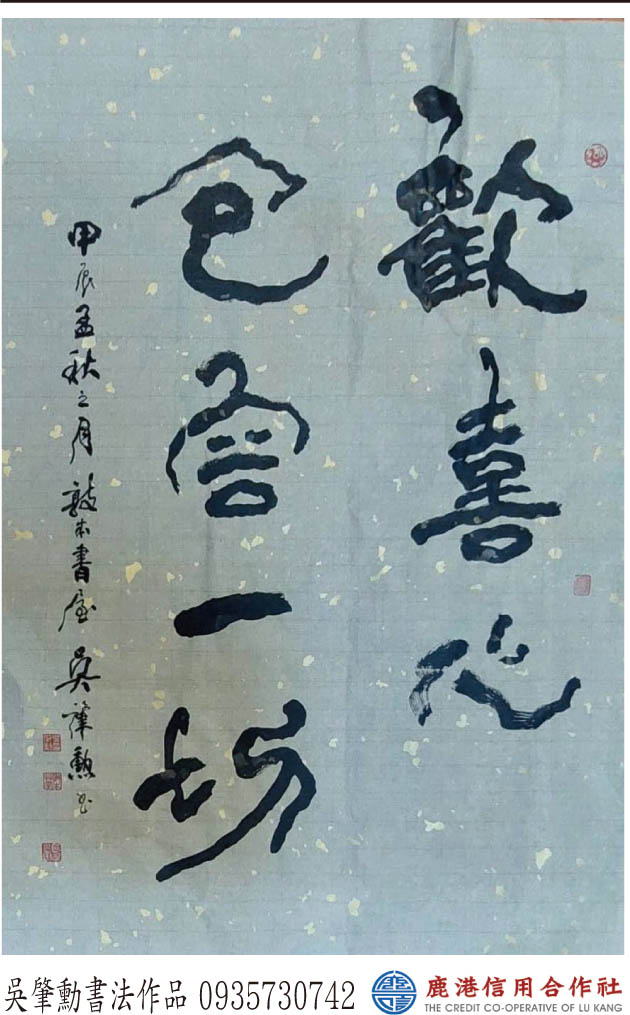 歡喜心
包容一切
甲辰孟秋之月敦本書屋吳肇勳書
吳肇勳書法作品 0935730742
鹿港信用合作社
THE CREDIT CO-OPERATIVE OF LU KANG